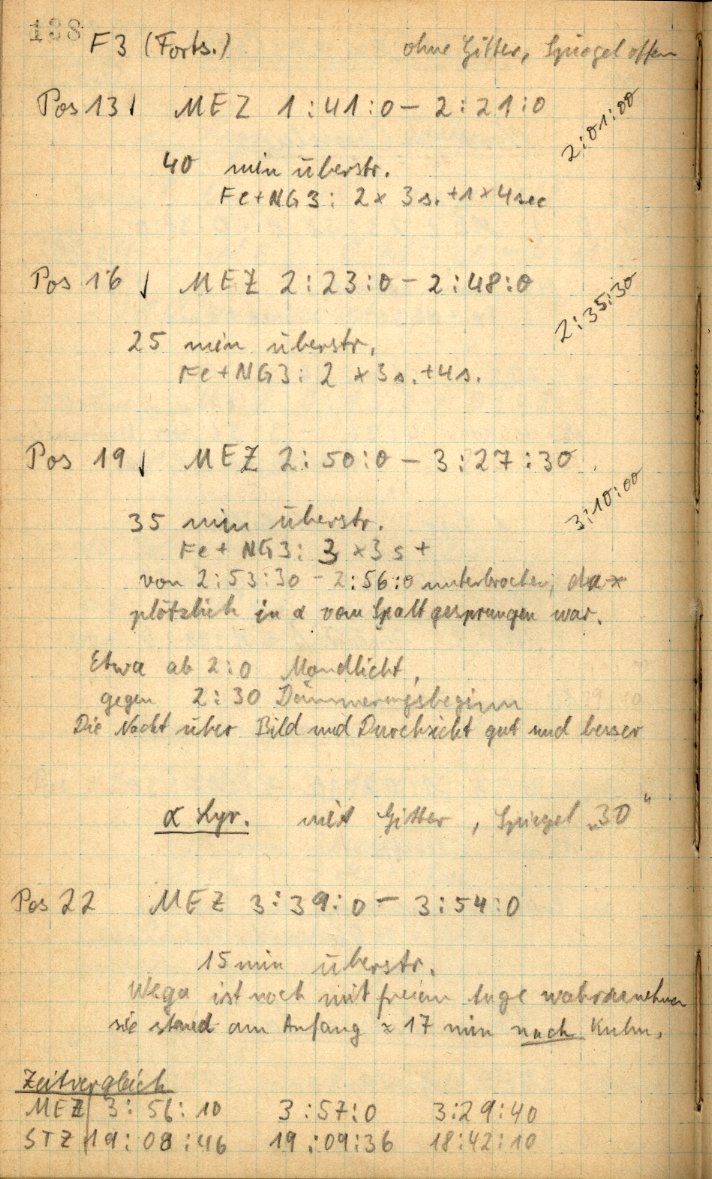 138
F3 (Forts.) ohne Gitter, Spiegel offen
Pos 13 MEZ 1:41:0 – 2:21:0
2:01:00
40 min überstr.
Fe+NG3: 2 x 3 s. + 1 x 4 sec
Pos 16 MEZ 2:23:0 – 2:48:0
2:35:30
25 min überstr.
Fe+NG3: 2 x 3 s. + 4 s.
Pos 19 MEZ 2:50:0 – 3:27:30
3:10:00
35 min überstr.
Fe + NG3: 3 x 3 s +
von 2:53:30 – 2:56:0 unterbrochen, da x
plötzlich in α vom Spalt gesprungen war.
Etwa ab 2:0 Mondlicht,
gegen 2:30 Dämmerungsbeginn
Die Nacht über Bild und Durchsicht gut und besser
α Lyr. mit Gitter, Spiegel „30"
Pos 22 MEZ 3:39:0 – 3:54:0
15 min überstr.
Wega ist noch mit freiem Auge wahrzunehmen
sie stand am Anfang ≈ 17 min nach Kulm.
Zeitvergleich
MEZ 3:56:10 3:57:0 3:29:40
STZ 19:08:46 19:09:36 18:42:10